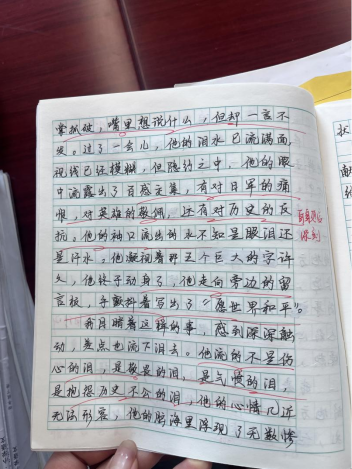 掌抓破，嘴里想说什么，但却一言不
发。过了一会儿，他的泪水已流满面，
视线已经模糊，但隐约之中，他的眼
中流露出了百感交集，有对日军的痛
恨，对英雄的敬佩，还有对历史的反
抗。他的袖口流出的水不知是眼泪还
是汗水。他凝视着那五个巨大的字许
久，他终于动身了，他走向旁边的留
言板，手颤抖着写出了“愿世界和平”。
我目睹着这样的事，感到深深触
动，差点也流下泪去。他流的不是伤
心的泪，是敬畏的泪，是气愤的泪，
是抱怨历史不公的泪，他的心情几近
无法形容，他的脑海里浮现了无数惨
状
献